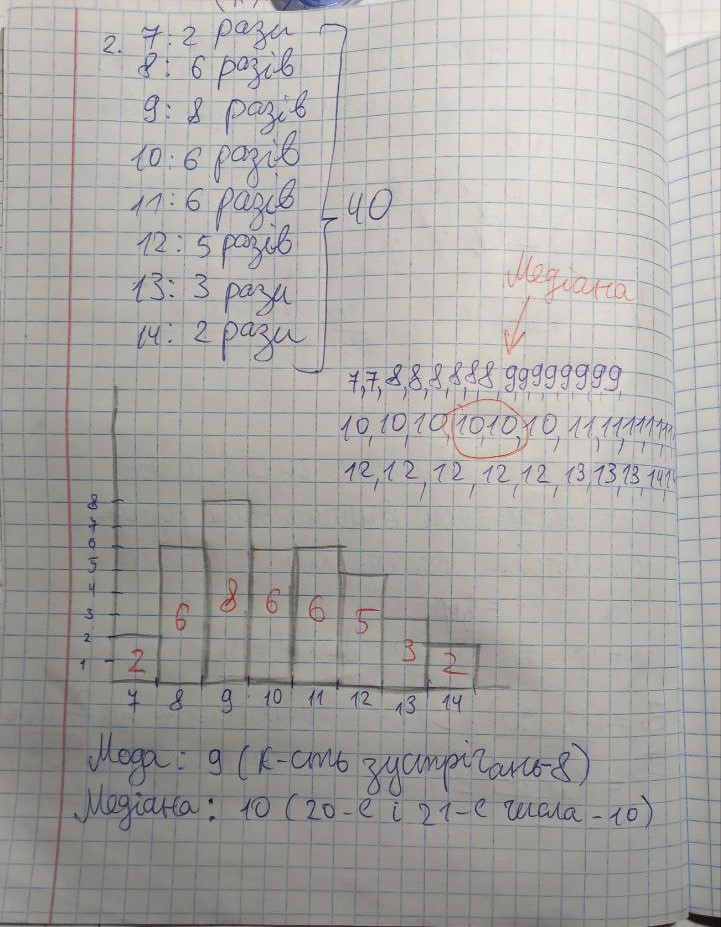 2. 7: 2 рази
8: 6 разів
9: 8 разів
10: 6 разів
11: 6 разів
12: 5 разів
13: 3 рази
14: 2 рази
40
Медіана
7,7,8,8,8,8,8 8 99999999,
10,10,10,10,10,10,11,11,11,11,11,11
12,12,12,12,12,13,13,13,14,1
8
7
6
5
4
3
2
1
2 6 8 6 6 5 3 2
7 8 9 10 11 12 13 14
Мода: 9 (к-сть зустрічань-8)
Медіана: 10 (20-е і 21-е числа - 10)